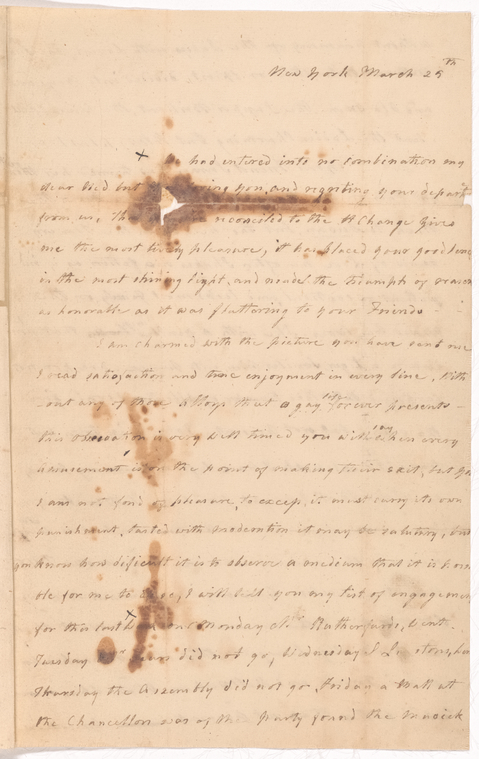 New York March 25th
had entered into no combination my
dear but you, and regretting your depart
from us, reconciled to the Change Gives
me the most lively pleasure, it has placed your good
in the most shining light, and rendered the triumph of reason
as honorable as it was fluttering to your Friends
I am charmed with the picture you have sent me
I read satisfaction and true enjoyment in every line, With
-out any of those alloys that a gay life forever presents -
this observation is very well timed you will say when every
amusement is on the point of making their exit, but
I am not fond of pleasure, to excess it must carry its own
punishment, tasted with moderation it may be salutary, but
you know how difficult it is to observe a medium that it is
ble for me to I will tell you my list of engagements
for this last Monday Rutherfurds, went
Tuesday did not go, Wednesday
Thursday the Assembly did not go, Friday a Ball at
the Chancellors was of the Party found the Musick